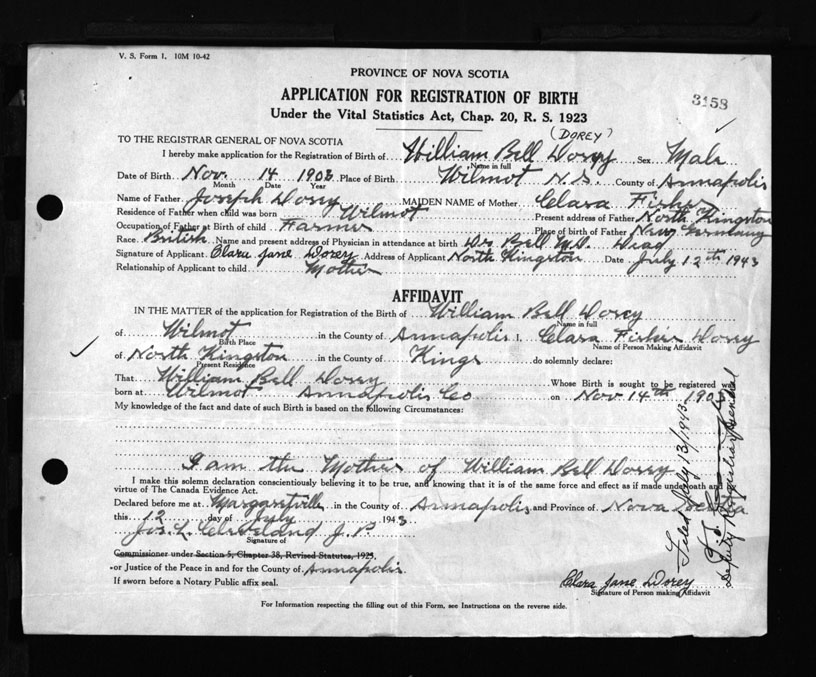 V. S. Form 1. 10M 10-42
PROVINCE OF NOVA SCOTIA
3158
APPLICATION FOR REGISTRATION OF BIRTH
Under the Vital Statistics Act, Chap. 20, R. S. 1923
(DOREY)
TO THE REGISTRAR GENERAL OF NOVA SCOTIA
I hereby make application for the Registration of Birth of William Bell Dorey Sex Male
Name in full
Date of Birth Nov. 14 1903 Place of Birth Wilmot N.S. County of Annapolis
Month Date Year
Name of Father Joseph Dorey MAIDEN NAME of Mother Clara Fisher
Residence of Father when child was born Wilmot Present address of Father North Kingston
Occupation of Father at Birth of child Farmer Place of birth of Father New Germany
Race British Name and present address of Physician in attendance at birth Dr. Bell M.D. Dead
Signature of Applicant Clara Jane Dorey Address of Applicant North Kingston Date July 12th 1943
Relationship of Applicant to child Mother
AFFIDAVIT
IN THE MATTER of the application for Registration of the Birth of William Bell Dorey
Name in full
of Wilmot in the County of Annapolis I, Clara Fisher Dorey
Birth Place Name of Person Making Affidavit
of North Kingston in the County of Kings do solemnly declare:
Present Residence
That William Bell Dorey Whose Birth is sought to be registered was
born at Wilmot Annapolis Co on Nov 14th 1903
My knowledge of the fact and date of such Birth is based on the following Circumstances:
I am the Mother of William Bell Dorey
I make this solemn declaration conscientiously believing it to be true, and knowing that it is of the same force and effect as if made under oath and by
virtue of The Canada Evidence Act.
Declared before me at Margaretville in the County of Annapolis and Province of Nova Scotia
this 12 day of July 1943
Jos. L. Cleveland J. P.
Signature of
Commissioner under Section 5, Chapter 38, Revised Statutes, 1923,
or Justice of the Peace in and for the County of Annapolis
If sworn before a Notary Public affix seal.
Clara Jane Dorey
Signature of Person making Affidavit
For Information respecting the filling out of this Form, see Instructions on the reverse side.
Filed July 13/1943
Deputy Registrar General